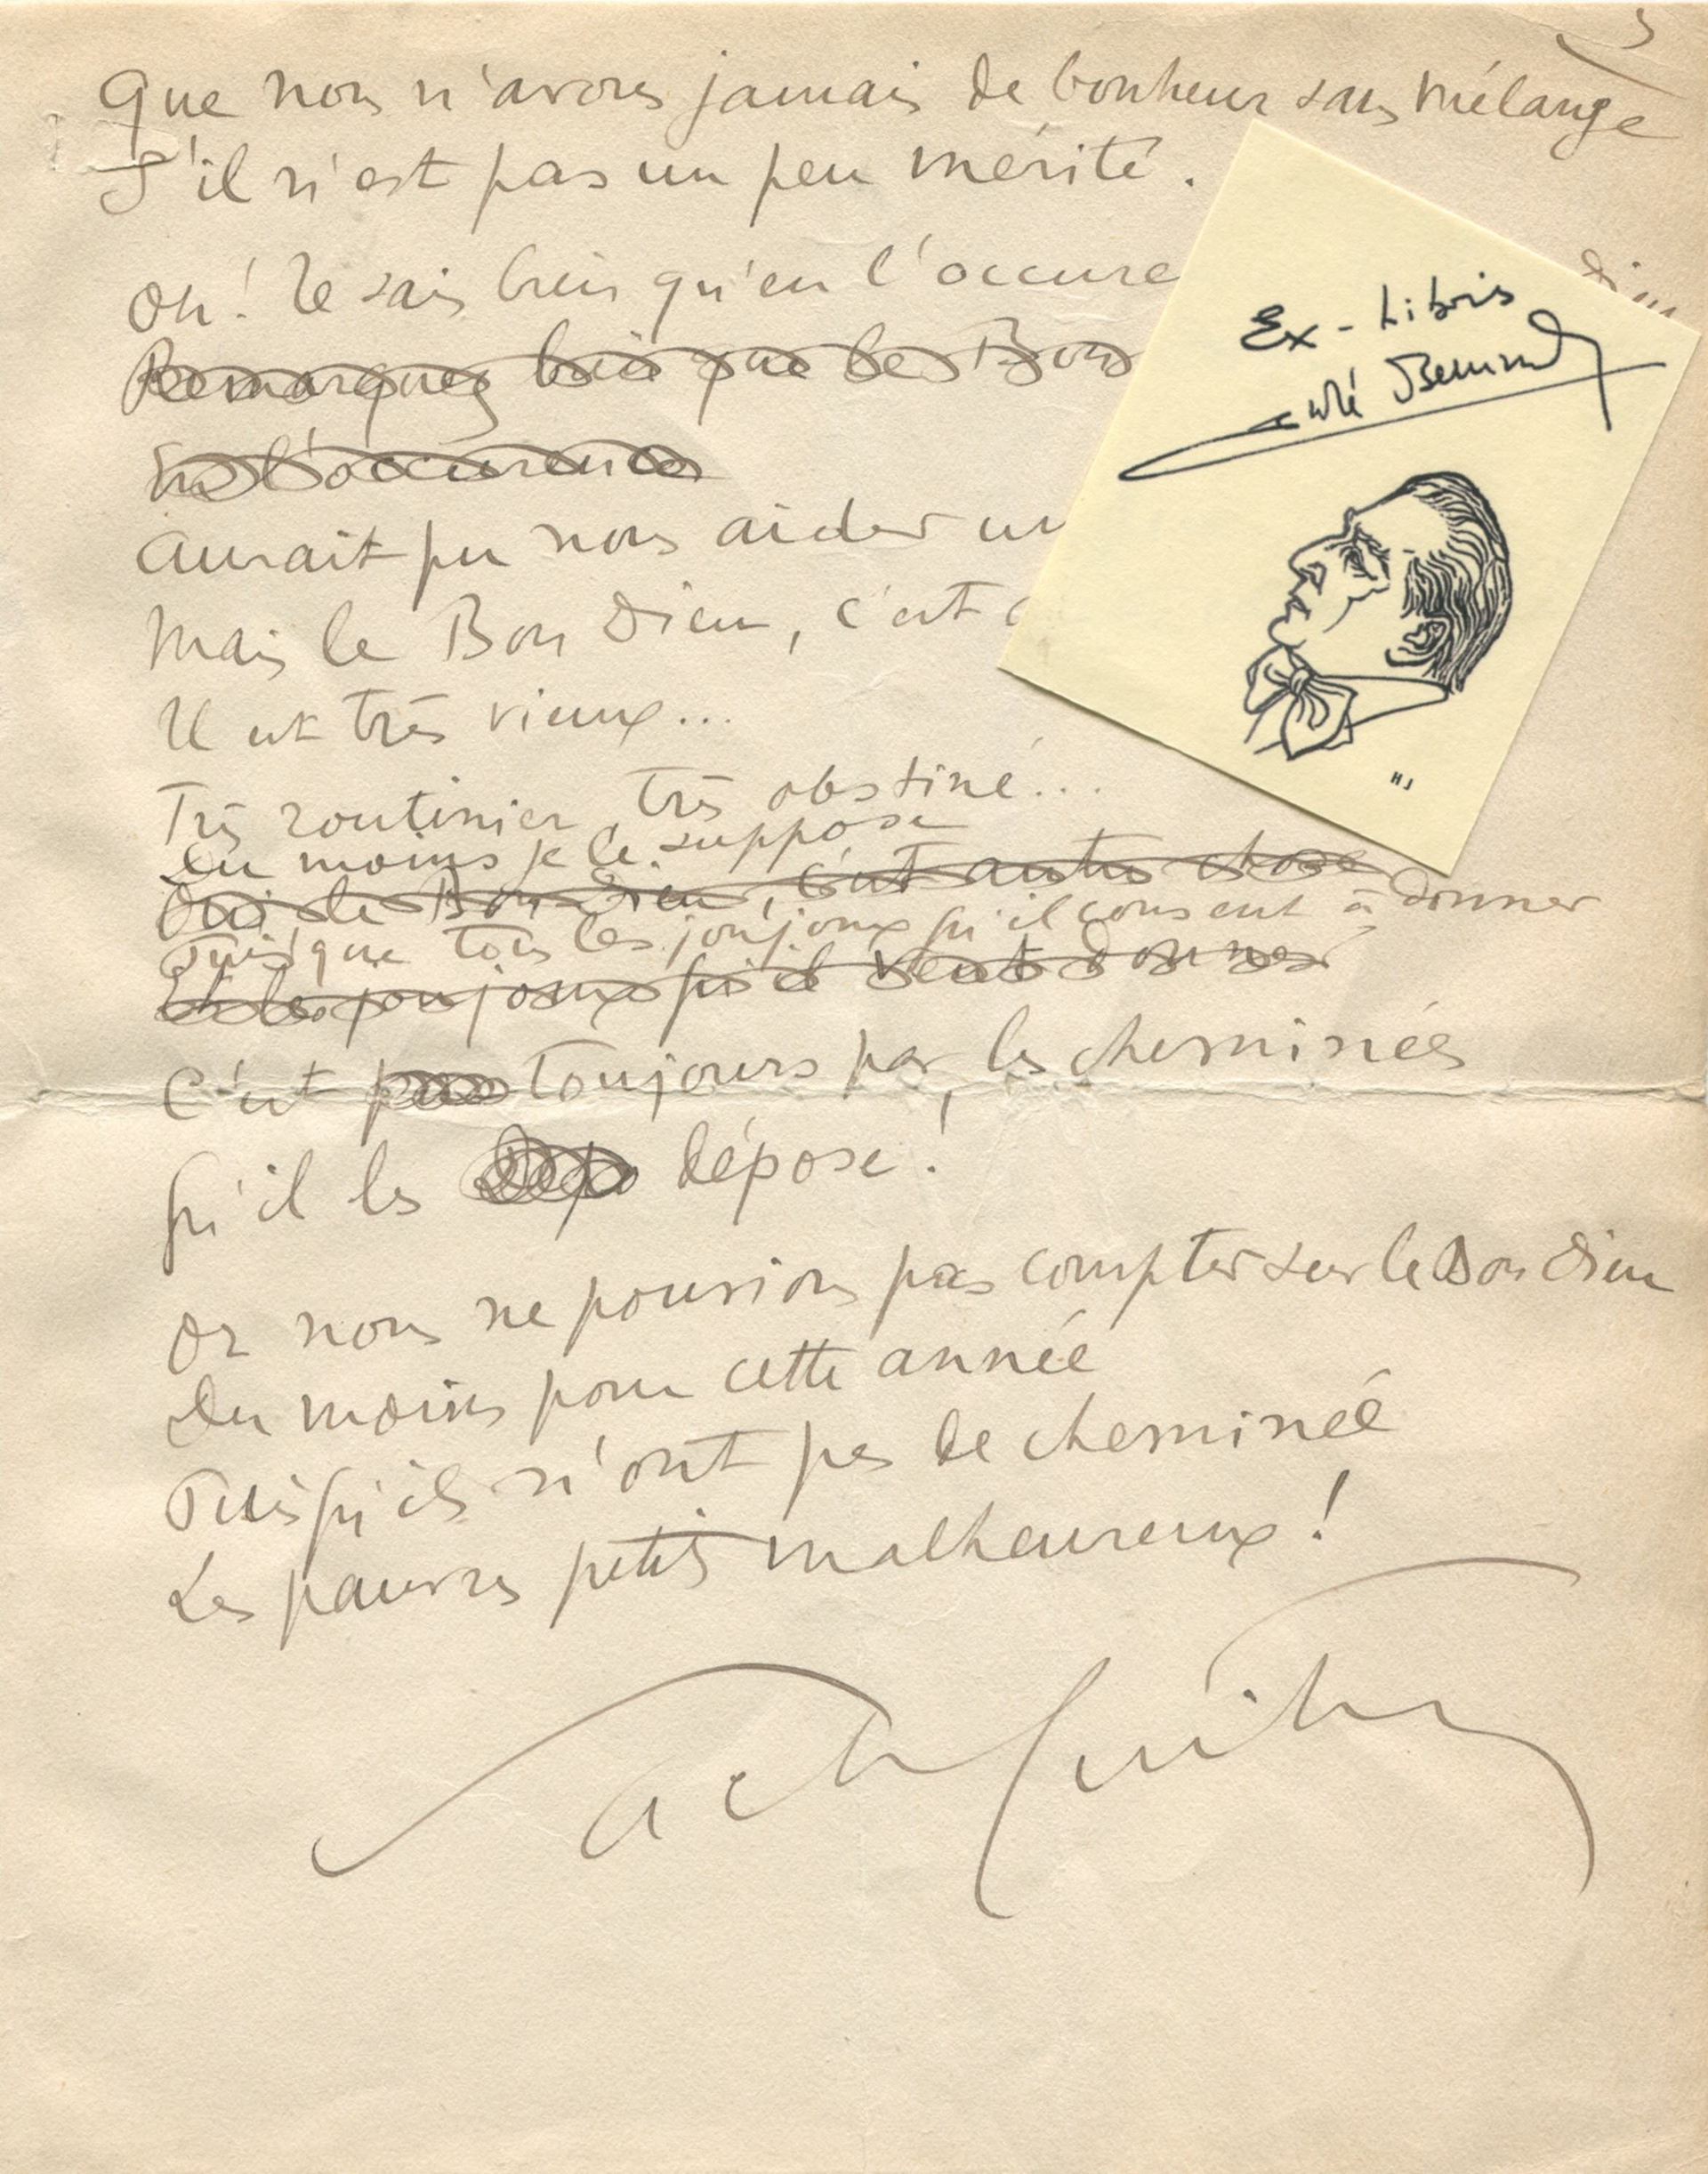 3
Que nous n'avons jamais de bonheur sans mélange
S'il n'est pas un peu mérité.
Oh! Je sais bien qu'en l'occure Dieu
Remarquez bien que le Bon
En l'occurence
Aurait pu nous aider un
Mais le Bon Dieu, c'est
Il est très vieux...
Très routinier, très obstiné...
Du moins je le suppose
Oui le Bon Dieu, c'est autre chose
Puisque tous les joujoux qu'il consent à donner
Et les joujoux qu'il veut donner
C'est pas toujours par les cheminées
Qu'il les dépo dépose!
Or nous ne pouvions pas compter sur le Bon Dieu
Du moins pour cette année
Puisqu'ils n'ont pas de cheminée
Les pauvres petits malheureux!
Sacha Guitry
Ex-Libris
André Bernard
HJ